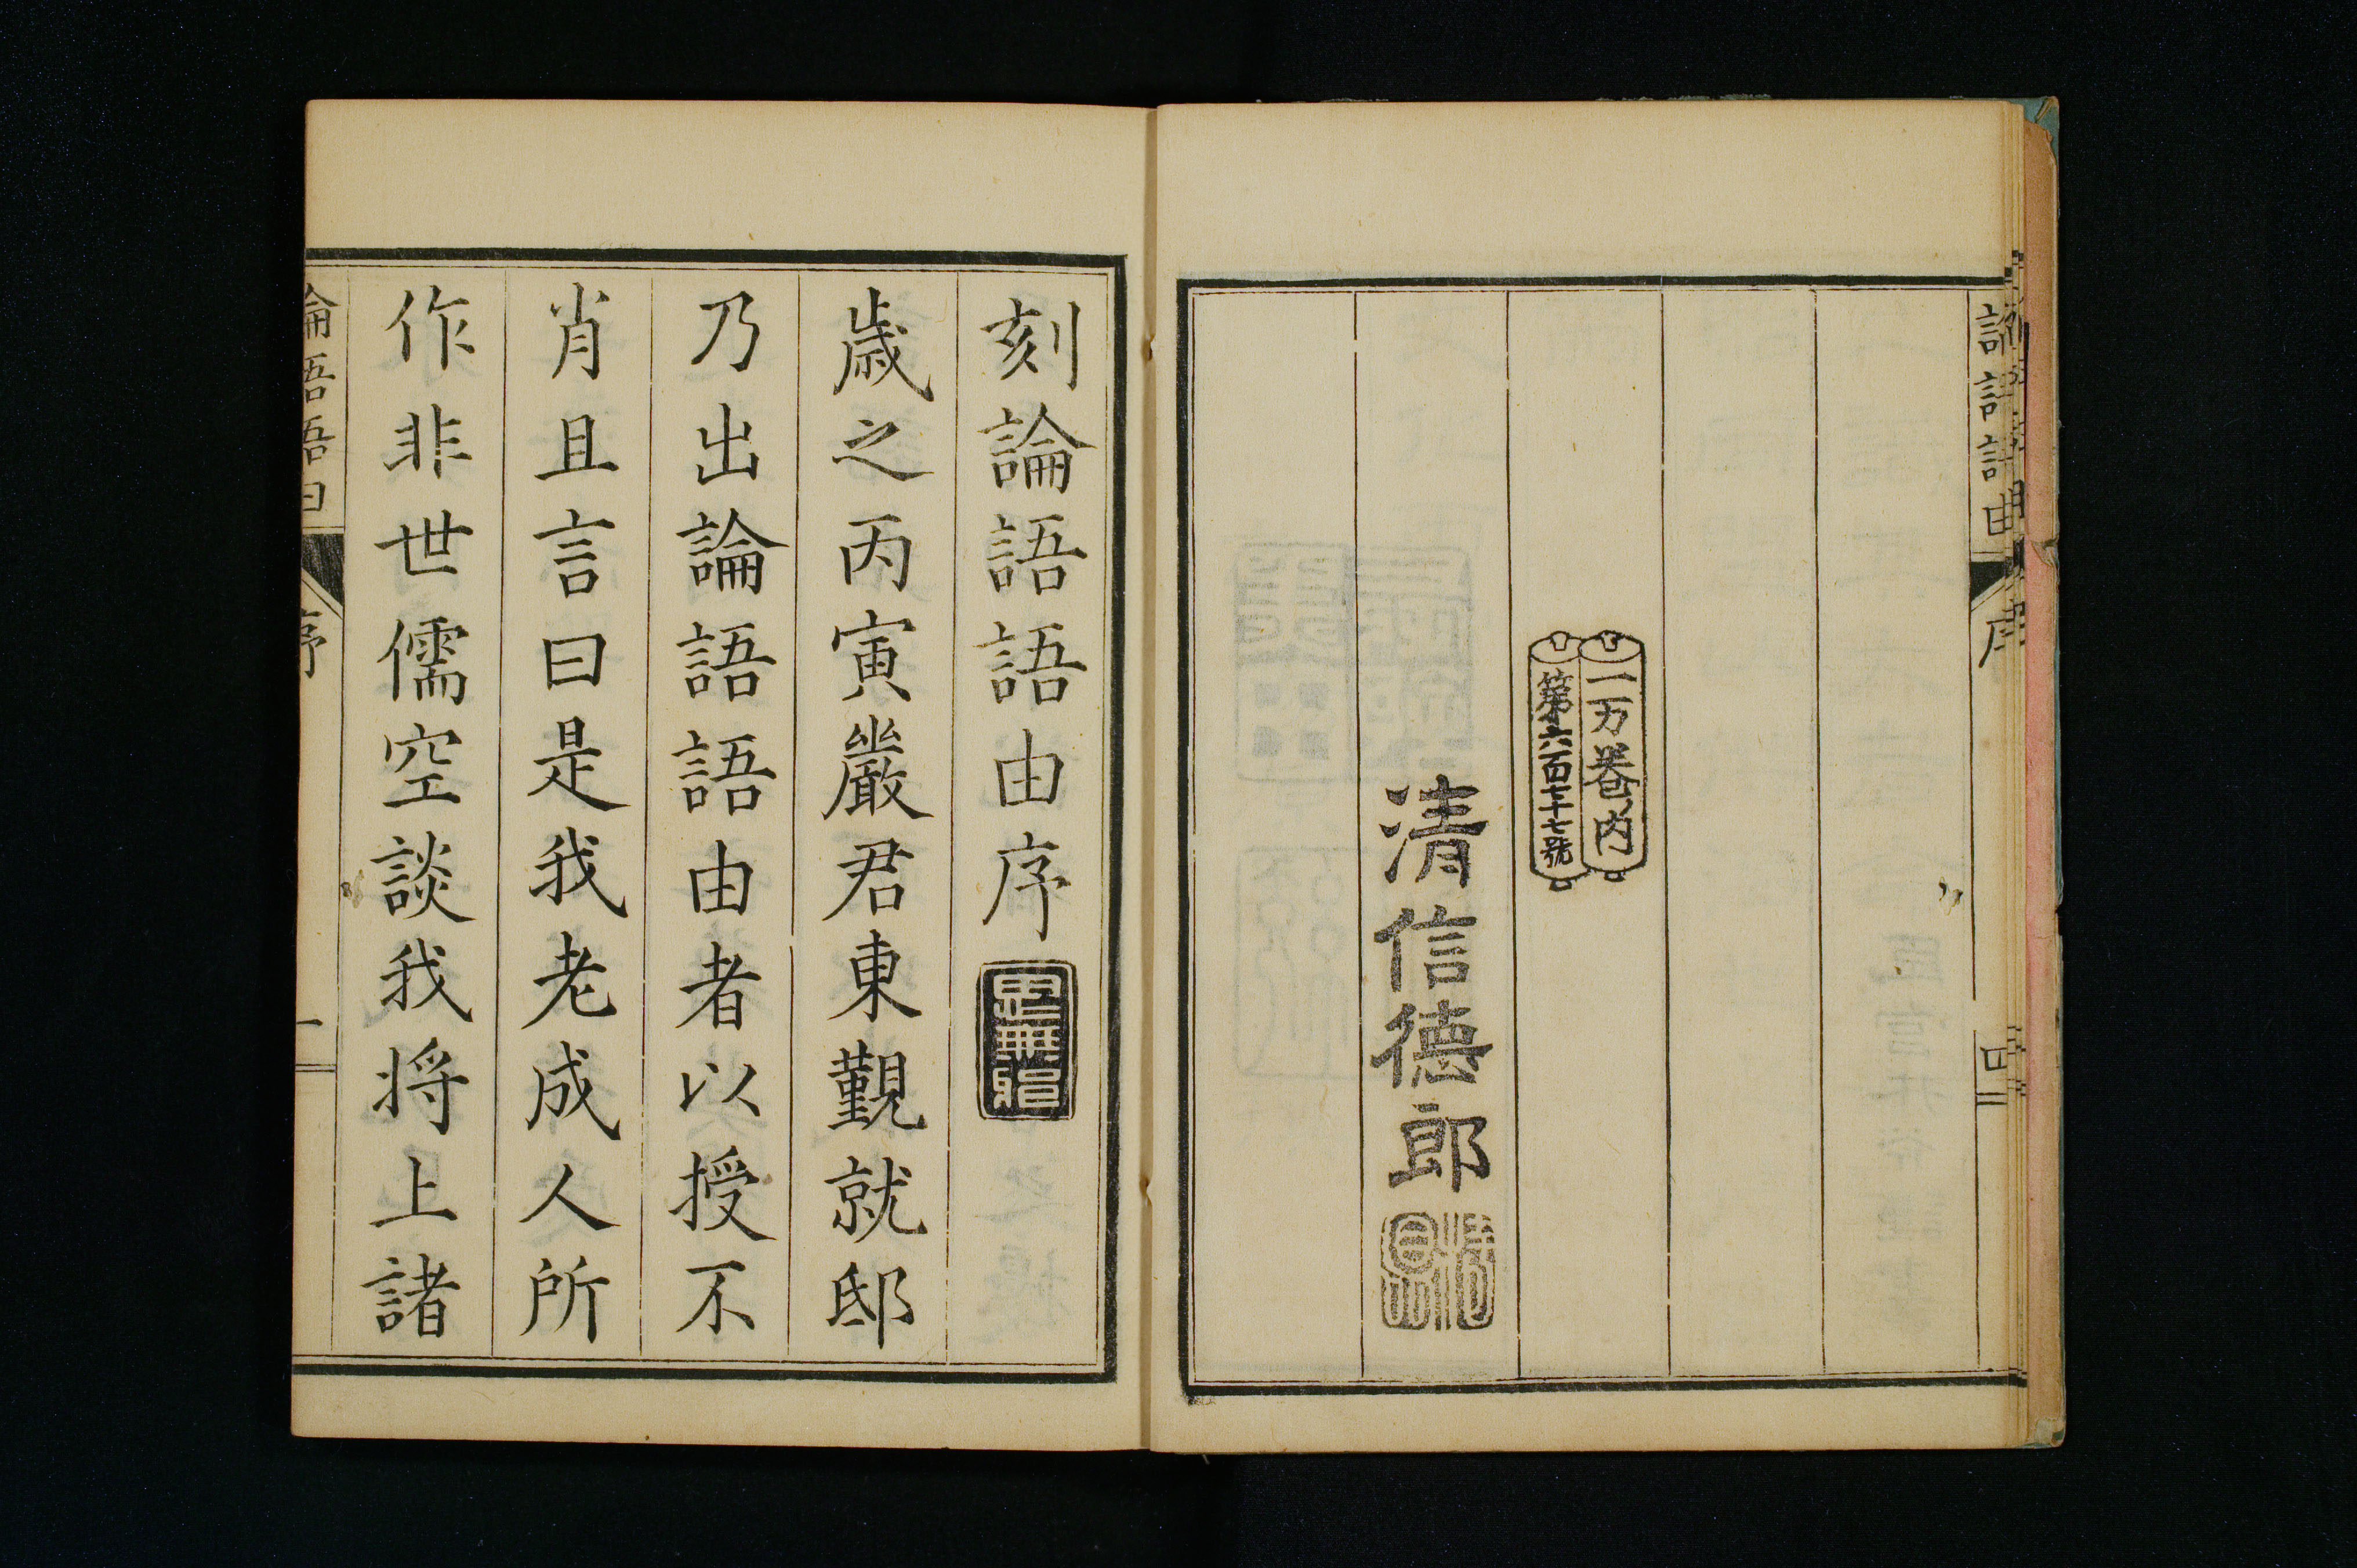 論語語由
序
四
一万巻内
第六百七十七號
清信德郎
刻論語語由序
歲之丙寅嚴君東覲就邸
乃出論語語由者以授不
肖且言曰是我老成人所
作非世儒空談我将上諸
論語語由
序
一